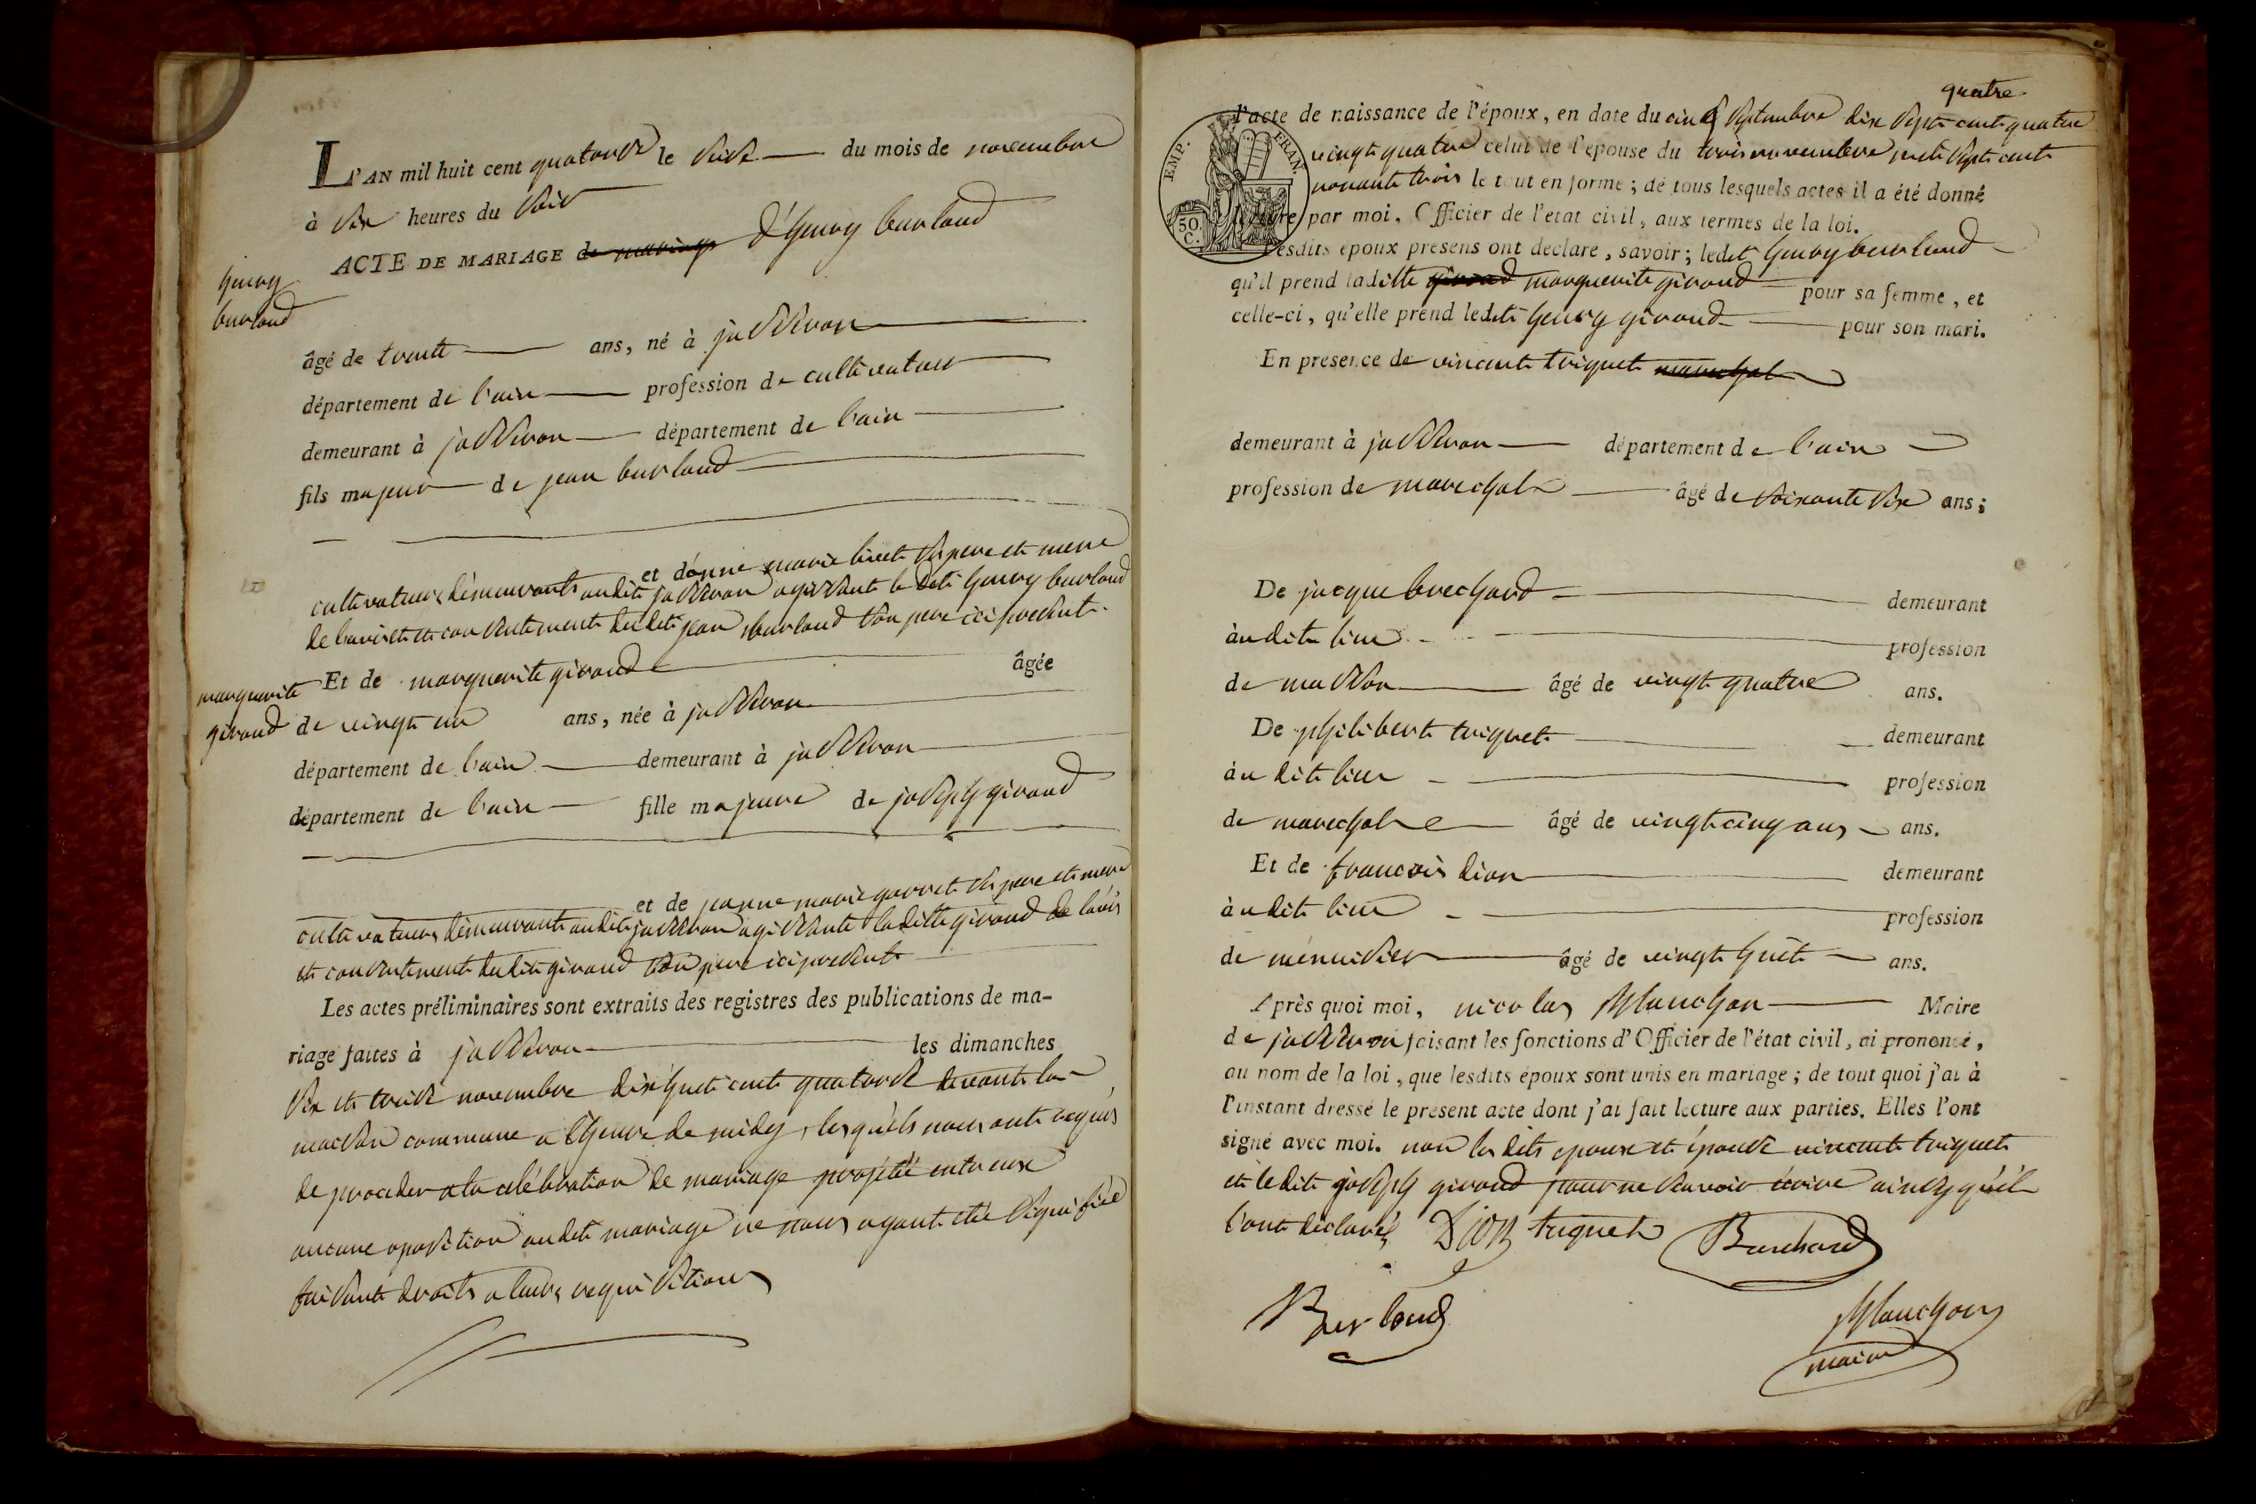 L'AN mil huit cent quatorze le seize du mois de novembre
à six heures du soir
ACTE DE MARIAGE de mariage d'henry burloud
henry
burloud
âgé de trente ans, né à jasseron
département de l'ain profession de cultivateur
demeurant à jasseron département de l'ain
fils majeur de jean burloud
et d'anne marie livet ses pere et mere
cultivateurs demeurants audit jasseron agissant ledit henry burloud
de l'avis et consentement dudit jean burloud son pere ici présent
Et de marguerite giroud âgée
marguerite
giroud
de vingt un ans, née à jasseron
département de l'ain demeurant à jasseron
département de l'ain fille majeure de joseph giroud
et de jeanne marie ses pere et mere
cultivateurs demeurants audit jasseron agissante laditte giroud de l'avis
et consentement dudit giroud son pere ici présent
Les actes préliminaires sont extraits des registres des publications de ma-
riage faites à jasseron les dimanches
six et treize novembre dix huit cent quatorze devant la
maison commune a l'heure de midy, lesquels nous ont requis
de proceder a la célébration de mariage projété entr'eux
aucune oposition audit mariage ne nous ayant été signifiée
faisant droits a leurs requisitions
quatre
l'acte de naissance de l'époux, en date du cinq septembre dix sept cent quatre
vingt quatre celui de l'epouse du trois novembre mil sept cent
nonante trois le tout en forme; de tous lesquels actes il a été donné
lecture par moi, Officier de l'etat civil, aux termes de la loi.
EMP. FRAN.
50.
C.
Lesdits epoux présens ont declaré, savoir; ledit henry burloud
qu'il prend laditte giroud marguerite giroud pour sa femme, et
celle-ci, qu'elle prend ledit henry giroud pour son mari.
En presence de vincent triquet marechal
demeurant à jasseron département de l'ain
profession de marechal âgé de soixante six ans;
De jacque brechard demeurant
audit lieu profession
de masson âgé de vingt quatre ans.
De philibert triquet demeurant
audit lieu profession
de marechal âgé de vingt cinq ans ans.
Et de francois dion demeurant
audit lieu profession
de menuisier âgé de vingt huit ans.
Après quoi moi, nicolas planchon Maire
de jasseron faisant les fonctions d'Officier de l'état civil, ai prononcé,
au nom de la loi, que lesdits époux sont unis en mariage; de tout quoi j'ai à
l'instant dressé le présent acte dont j'ai fait lecture aux parties. Elles l'ont
signé avec moi. non les dits epoux et épouse vincent triquet
et ledit joseph giroud pour ne savoir écrire ainsy qu'il
l'ont déclarés Dion triquet Burchard
Burloud
Planchon
maire